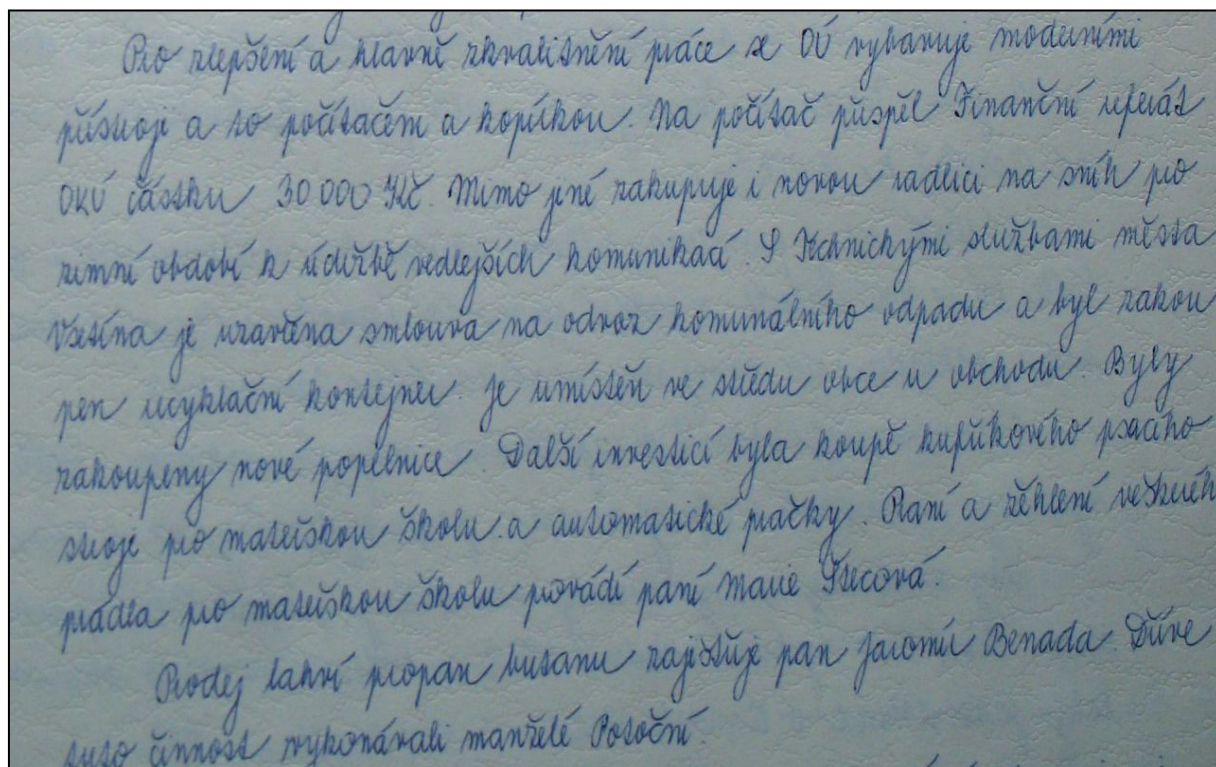 Pro zlepšení a hlavně zkvalitnění práce se OÚ vybavuje moderními
přístroji a to počítačem a kopírkou. Na počítač přispěl Finanční referát
OKÚ částku 30 000 Kč. Mimo jiné zakupuje i novou radlici na sníh pro
zimní období k údržbě vedlejších komunikací. S Technickými službami města
Vsetína je uzavřena smlouva na odvoz komunálního odpadu a byl zakou
pen recyklační kontejner. Je umístěn ve středu obce u obchodu. Byly
zakoupeny nové popelnice. Další investicí byla koupě kufříkového psacího
stroje pro mateřskou školu a automatické pračky. Praní a žehlení veškeréh
prádla pro mateřskou školu provádí paní Marie
Prodej lahví propan butanu zajišťuje pan Jaromír Benada. Dříve
tuto činnost vykonávali manželé Potoční.